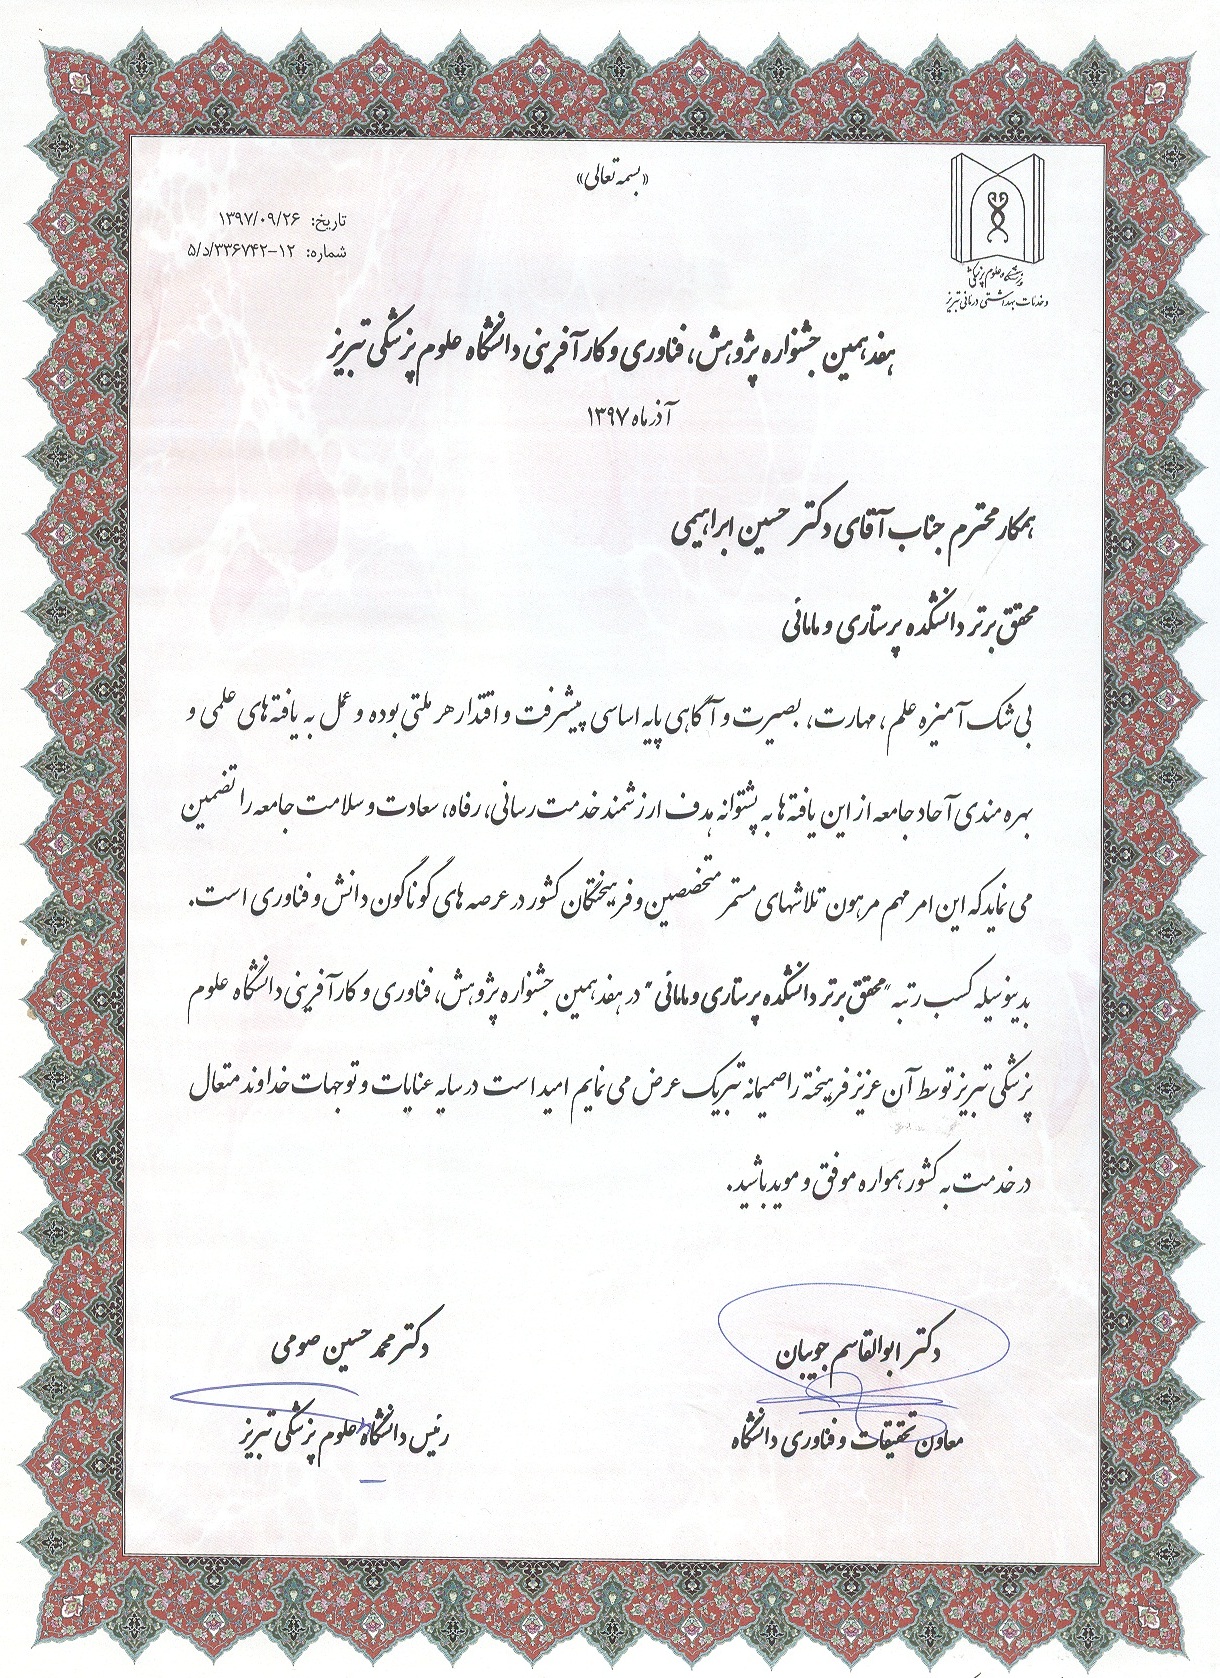 «بسمه تعالی»
تاریخ: ۱۳۹۷/۰۹/۲۶
شماره: ۵/د/۳۳۶۷۴۲-۱۲
دانشگاه علوم پزشکی
و خدمات بهداشتی درمانی تبریز
هفدهمین جشنواره پژوهش، فناوری و کارآفرینی دانشگاه علوم پزشکی تبریز
آذر ماه ۱۳۹۷
همکار محترم جناب آقای دکتر حسین ابراهیمی
محقق برتر دانشکده پرستاری و مامائی
بی شک آمیزه علم، مهارت، بصیرت و آگاهی پایه اساسی پیشرفت و اقتدار هر ملتی بوده و عمل به یافته های علمی و
بهره مندی آحاد جامعه از این یافته ها به پشتوانه هدف ارزشمند خدمت رسانی، رفاه، سعادت و سلامت جامعه را تضمین
می نماید که این امر مهم مرهون تلاشهای مستمر متخصصین و فرهیختگان کشور در عرصه های گوناگون دانش و فناوری است.
بدینوسیله کسب رتبه "محقق برتر دانشکده پرستاری و مامائی" در هفدهمین جشنواره پژوهش، فناوری و کارآفرینی دانشگاه علوم
پزشکی تبریز توسط آن عزیز فرهیخته را صمیمانه تبریک عرض می نمایم امید است در سایه عنایات و توجهات خداوند متعال
در خدمت به کشور همواره موفق و موید باشید.
دکتر ابوالقاسم جویبان
معاون تحقیقات و فناوری دانشگاه
دکتر محمد حسین صومی
رئیس دانشگاه علوم پزشکی تبریز